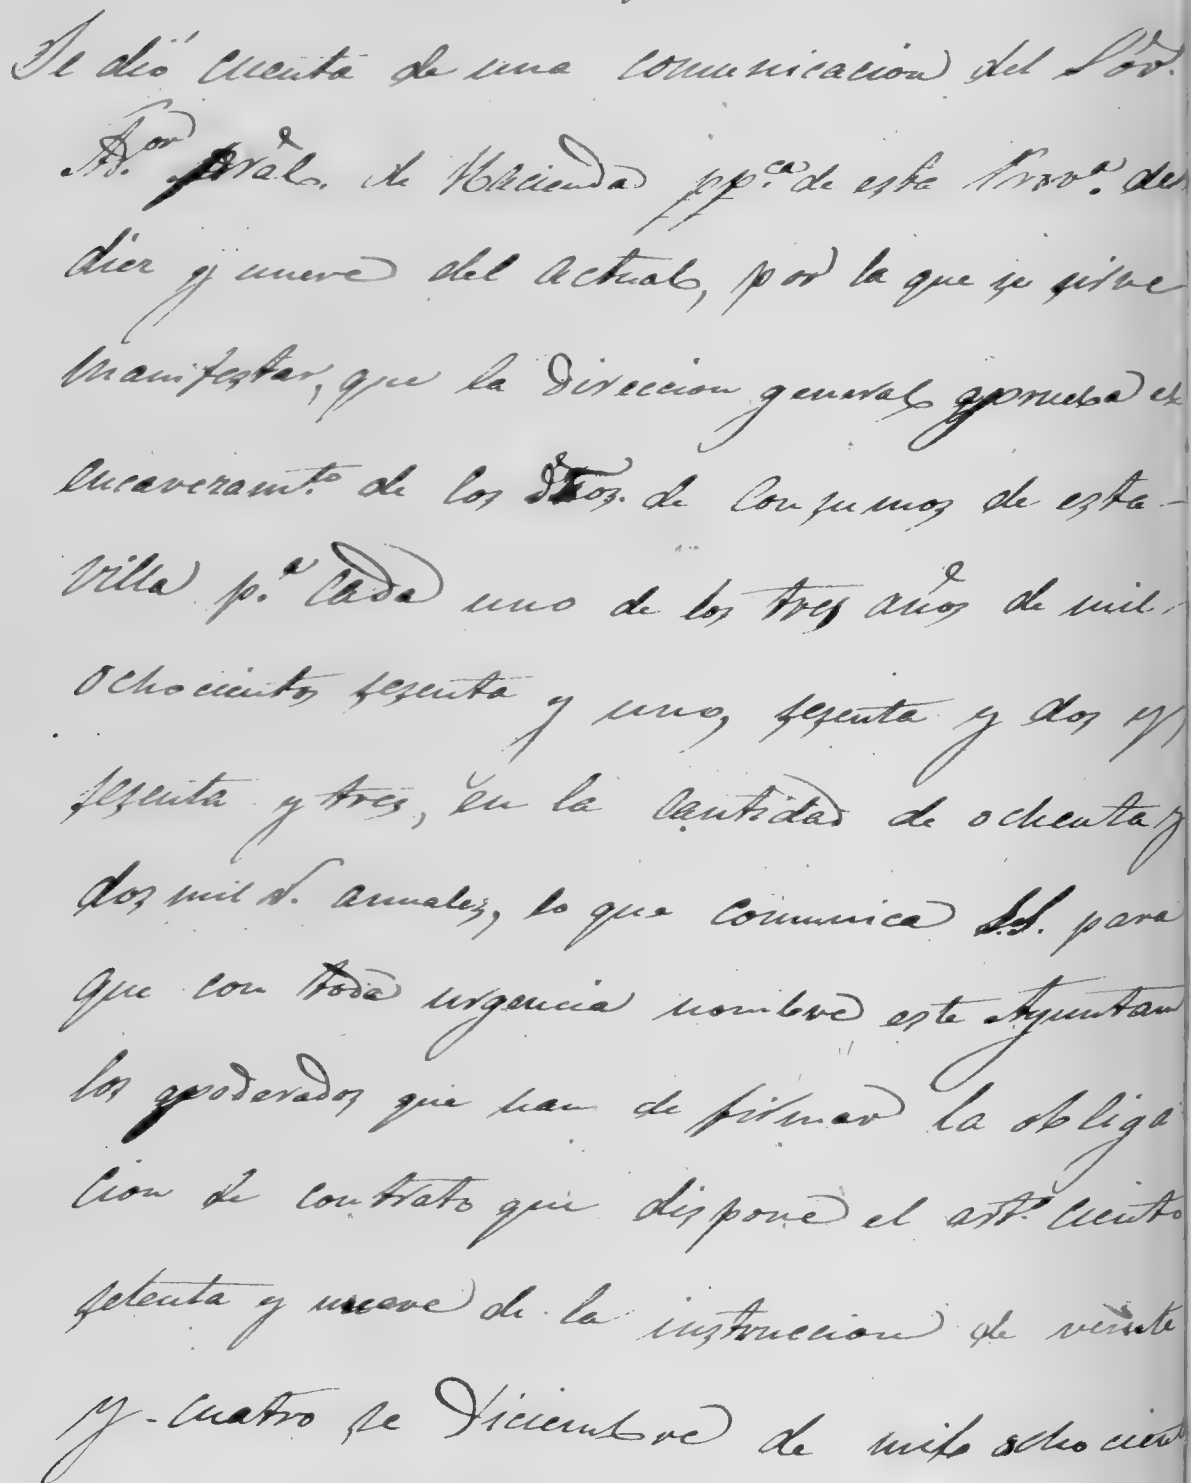 Se dió cuenta de una comunicacion del Sor.
Ad.or pral. de Hacienda pp.ca de esta Prov.a del
diez y nueve del actual, por la que se sirve
manifestar, que la Direccion general aprueba el
encavezam.to de los Dros. de Consumos de esta
villa p.a cada uno de los tres años de mil
ochocientos sesenta y uno, sesenta y dos y
sesenta y tres, en la cantidad de ochenta y
dos mil r. anuales, lo que comunica S.S. para
que con toda urgencia nombre este Ayuntam
los apoderados que han de firmar la obliga
cion de contrato que dispone el art.o ciento
setenta y nueve de la instruccion de veinte
y cuatro de Diciembre de mil ochocient